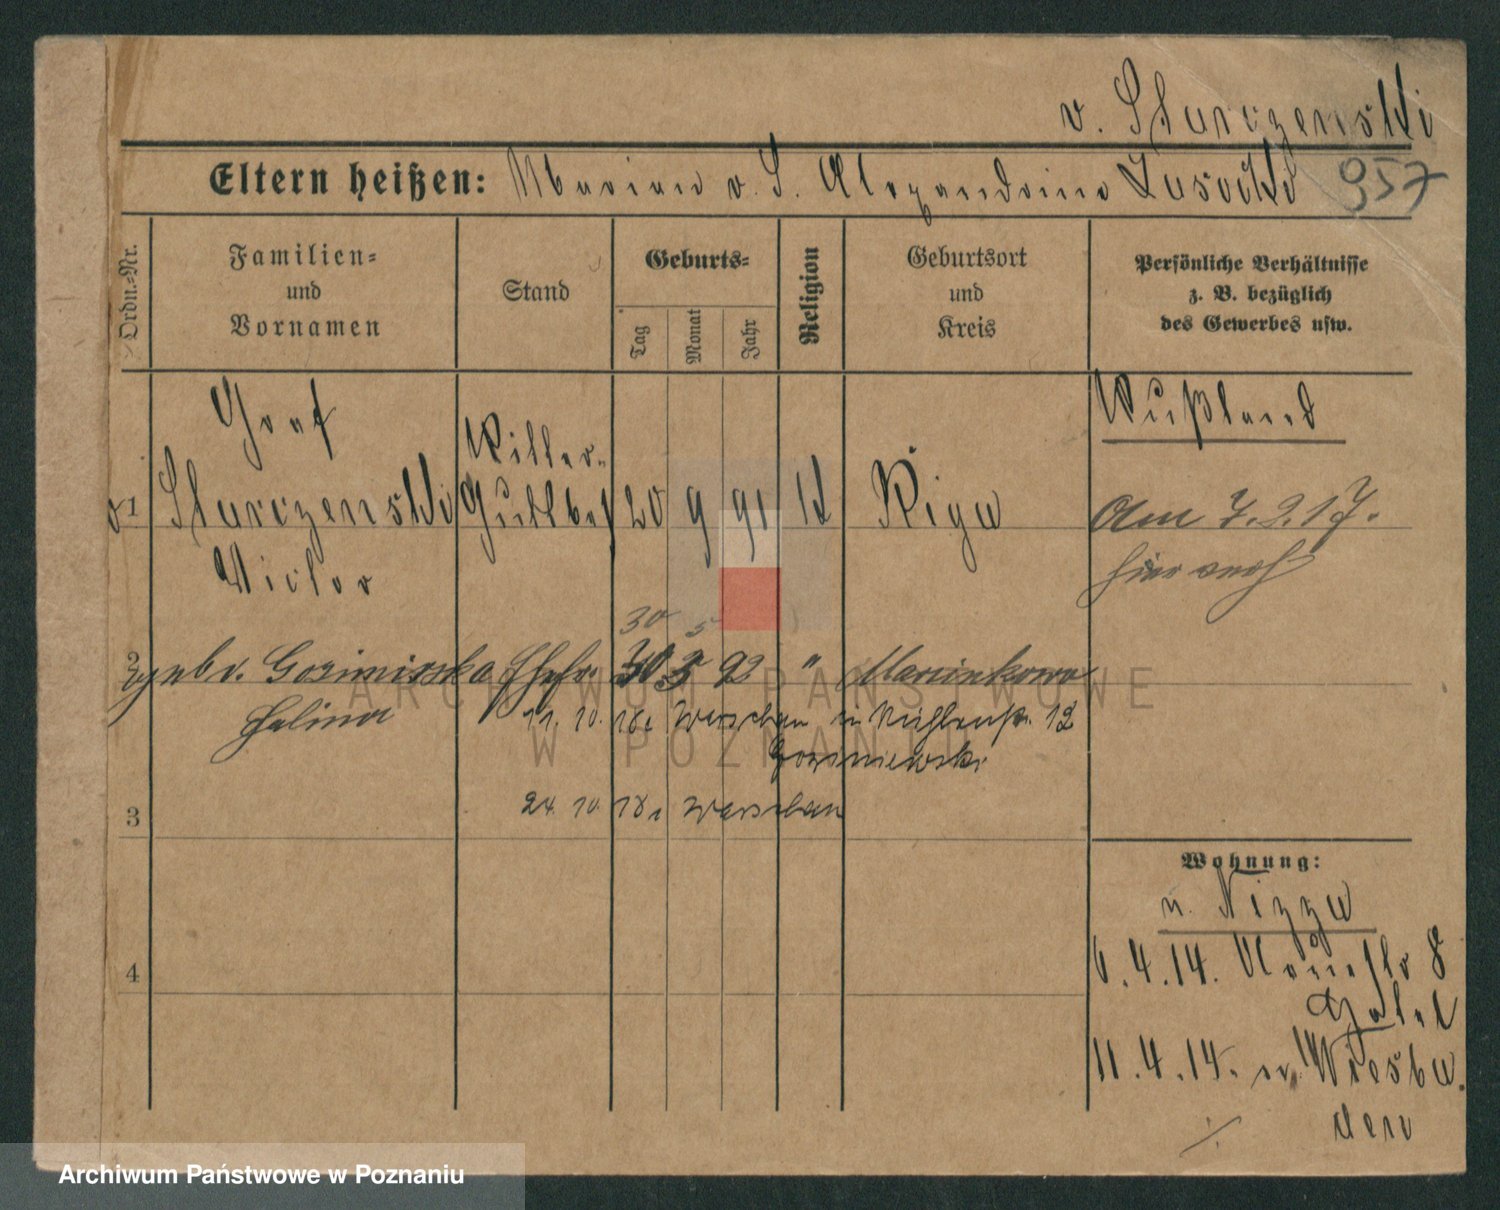 v. Starczenski
957
Eltern heißen: Marian v. S. Alexandrine Lusocki
Ordn.-Nr.
Familien-
und
Vornamen
Stand
Geburts-
Tag
Monat
Jahr
Religion
Geburtsort
und
Kreis
Persönliche Verhältnisse
z. B. bezüglich
des Gewerbes usw.
Rußland
Graf
1 Starczenski Ritter- 20 9 91 k Riga
Gutsbes
Victor
Am 7.2.17.
hier verh
30 5
2 geb v. Gozimirska Ehefr. 30 5 92 " Marcinkowo
Halina
11. 10. 18 Warschau n Mühlenstr. 12
24. 10. 18 Warschau
3
4
Wohnung:
n. Nizza
6.4.14. 8
Hotel
11.4.14. n. Wiesba
den
ARCHIWUM PAŃSTWOWE
W POZNANIU
Archiwum Państwowe w Poznaniu